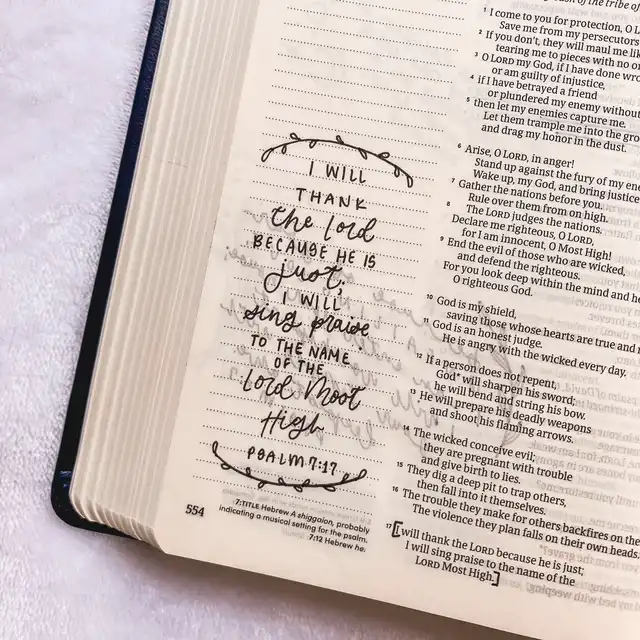 I WILL
THANK
the lord
BECAUSE HE IS
just;
I WILL
sing praise
TO THE NAME
OF THE
Lord Most
High
PSALM 7:17
554
7:TITLE Hebrew A shiggaion, probably
indicating a musical setting for the psalm.
7:12 Hebrew he.
of the tribe of
1 I come to you for protection, O
Save me from my persecutors
2 If you don't, they will maul me
tearing me to pieces with no
3 O LORD my God, if I have done
or am guilty of injustice,
4 if I have betrayed a friend
or plundered my enemy without
5 then let my enemies capture me.
Let them trample me into the
and drag my honor in the dust.
6 Arise, O LORD, in anger!
Stand up against the fury of my
Wake up, my God, and bring justice
7 Gather the nations before you.
Rule over them from on high.
8 The LORD judges the nations.
Declare me righteous, O LORD,
for I am innocent, O Most High!
9 End the evil of those who are wicked,
and defend the righteous.
For you look deep within the mind and
O righteous God.
10 God is my shield,
saving those whose hearts are true and
11 God is an honest judge.
He is angry with the wicked every day.
12 If a person does not repent,
God* will sharpen his sword;
he will bend and string his bow.
13 He will prepare his deadly weapons
and shoot his flaming arrows.
14 The wicked conceive evil;
they are pregnant with trouble
and give birth to lies.
15 They dig a deep pit to trap others,
then fall into it themselves.
16 The trouble they make for others backfires on
The violence they plan falls on their own heads.
17 I will thank the LORD because he is just;
I will sing praise to the name of the
LORD Most High.